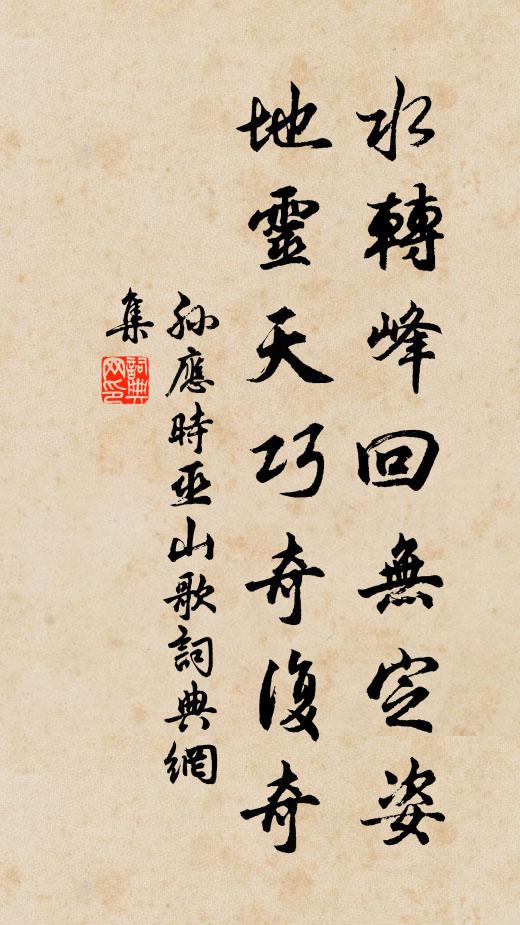 水轉峰回無定姿
地靈天巧奇復奇
孫應時巫山歌詞典網
集
詞典網印